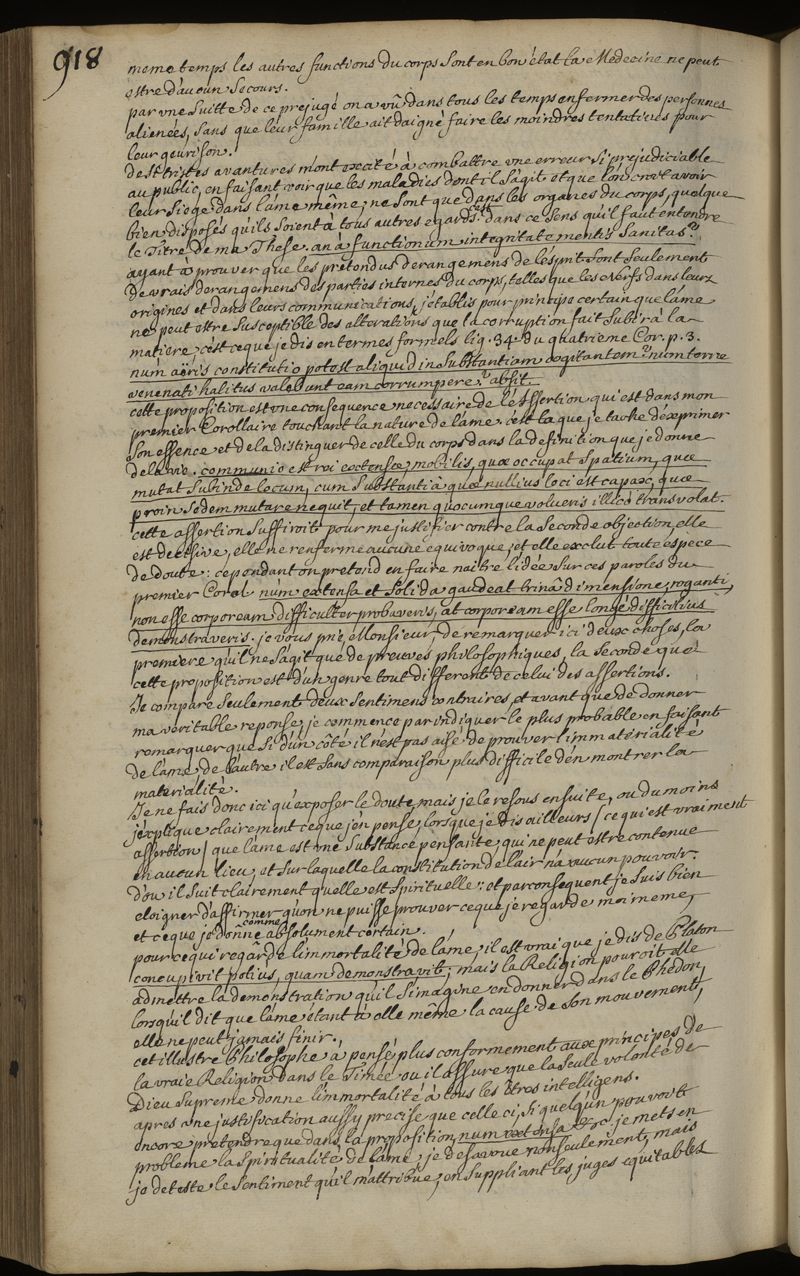 918
meme temps les autres functions du corps sont en bon état la Médecine ne peut
estre d'aucun secours.
par une suitte de ce prejugé on a vû dans tous les temps enfermer des personnes
alienées, sans que leur famille ait daigné faire les moindres tentatives pour
leur guerison.
de si tristes avantures m'ont excité à combattre une erreur si prejudiciable
au public, en faisant voir que les maladies dont il s'agit et que l'on croit avoir
leur siege dans l'ame même, ne sont que dans les organes du corps, quelque
bien disposés qu'ils soient à tous autres egards. c'est dans ce sens qu'il faut entendre
le Titre de ma These. an à functionum integritate mentis sanitas?
ayant à prouver que les prétendus derangemens de l'esprit sont seulement
de vrais derangemens des parties internes du corps, telles que les nerfs dans leurs
origines et dans leurs communications, j'etablis pour principe certain que l'ame
ne peut estre susceptible des alterations que la corruption fait subir à la
matiere, c'est ce que je dis en termes formels lig. 34e du quatrieme Cor. p. 3.
num aëris constitutio potest aliquid in substantiam cogitantem? num terræ
venenati halitus valebunt eam corrumpere? absit.
cette proposition est une consequence necessaire de l'assertion qui est dans mon
premier Corollaire touchant la nature de l'ame. c'est la que je tache d'exprimer
son essence et de la distinguer de celle du corps dans la definition que je donne
de la vie. communio est rei extensæ mobilis, quæ occupat spatium, quæ
mutat subinde locum, cum substantiâ quæ nullius loci est capax, quæ
proin sedem mutare nequit, et tamen quocumque volueris illico transvolat.
cette assertion suffiroit pour me justifier contre la seconde objection, elle
est decisive, elle ne renferme aucune equivoque, et elle exclut toute espece
de doute: cependant on pretend en faire naitre l'idée sur ces paroles du
premier Corol. num extensa et solida gaudeat trinâ dimensione, roganti,
non esse corpoream difficulter probaveris, at corpoream esse longè difficilius
demonstraveris. je vous prie, Monsieur, de remarquer ici deux choses, la
premiere qu'il ne s'agit que de preuves philosophiques, la seconde que
cette proposition est d'un genre tout different de celui des assertions.
Je compare seulement deux sentimens contraires, et avant que de donner
ma veritable reponse, je commence par indiquer le plus probable en faisant
remarquer que si d'un côté il n'est pas aisé de prouver l'immatérialité
de l'ame, de l'autre il est sans comparaison plus difficile d'en montrer la
materialité.
Je ne fais donc ici qu'exposer le doute, mais je le resous ensuite, ou du moins
j'explique clairement ce que j'en pense, lorsque je dis ailleurs / ce qui est vraiment
assertion / que l'ame est une substance pensante, qui ne peut estre contenue
en aucun lieu, et sur laquelle la constitution de l'air n'a aucun pouvoir.
d'ou il suit clairement qu'elle est spirituelle: et par consequent je suis bien
eloigner d'affirmer qu'on ne puisse prouver ce que je regarde moi meme,
et ce que je donne comme absolument certain.
pour ce qui regarde l'immortalité de l'ame, il est vrai que je dis de Platon
concupivit potius, quam demonstravit; mais la Religion pouroit elle
admettre la demonstration qu'il s'imagine en donner dans le Phedon,
lorsqu'il dit que l'ame étant à elle même la cause de son mouvement,
elle ne peut jamais finir.
cet illustre Philosophe a pensé plus conformement aux principes de
la vraie Religion dans le Timée ou il assure que la seule volonté de
Dieu supreme donne l'immortalité à tous les êtres intelligens.
apres une justification aussy precise que celle ci, si quelqu'un pouvoit
encore pretendre que dans la proposition num extensa &c je mets en
probleme la spiritualité de l'ame, je desavoue non seulement, mais
je deteste le sentiment qu'il m'attribue, en suppliant les juges equitables